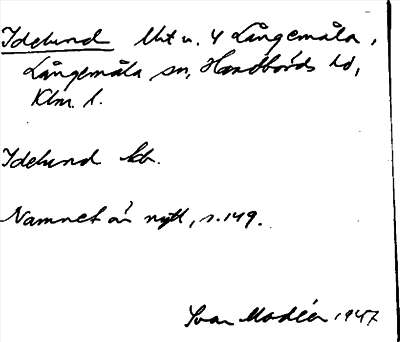 Idelund Utv. 4 Långemåla,
Långemåla sn, Handbörds hd,
Klm. l.
Idelund kb.
Namnet är nytt, s. 149.
Ivar Modéer 1947